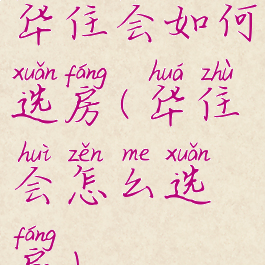 华住会如何
xuǎn fáng huá zhù
选房(华住
huì zěn me xuǎn
会怎么选
fáng
房)